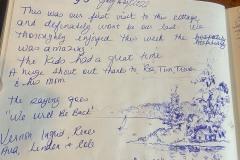 This was our first visit to the cottage
and definately wont be our last. We
thoroughly enjoyed this week the hospitality
was amazing.
The Kids had a great time
A huge shout out thanks to
& his mom
the saying goes
"We will Be Back"
Vernon Ingrid,
Ava,